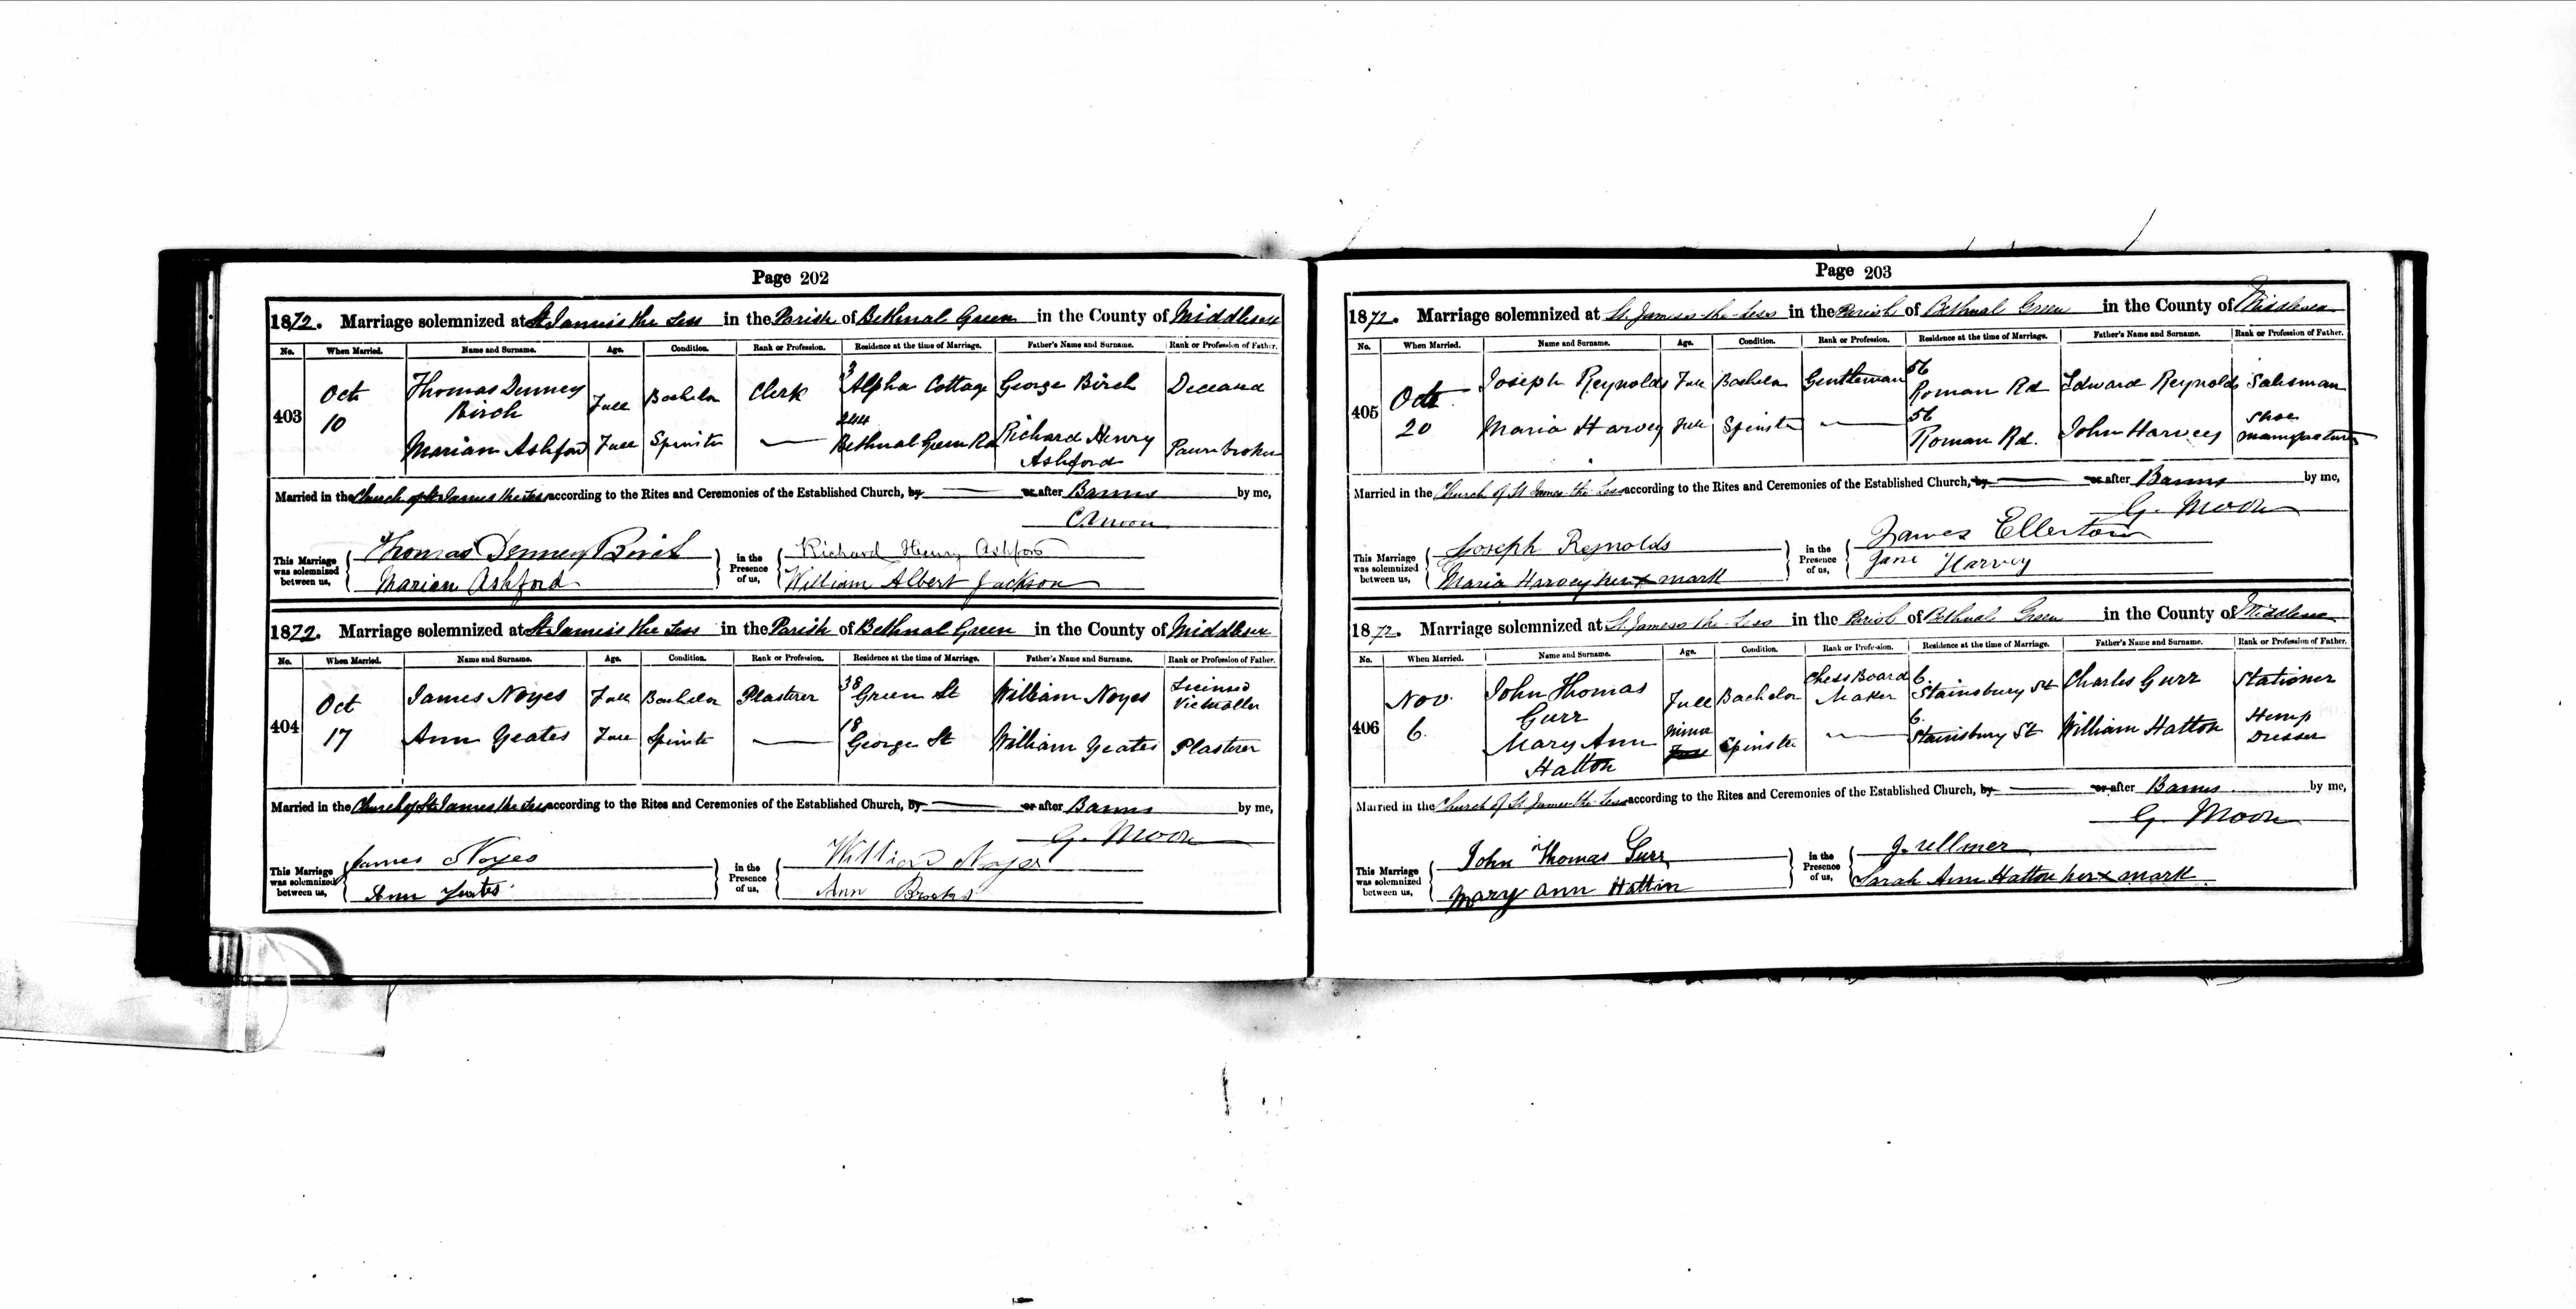 Page 202
1872. Marriage solemnized at St James's the Less in the Parish of Bethnal Green in the County of Middlesex
No. When Married. Name and Surname. Age. Condition. Rank or Profession. Residence at the time of Marriage. Father's Name and Surname. Rank or Profession of Father.
403 Oct 10 Thomas Denney Birch Full Bachelor Clerk 3 Alpha Cottage George Birch Deceased
Marian Ashford Full Spinster — 244 Bethnal Green Rd Richard Henry Ashford Pawnbroker
Married in the Church of St James the Less according to the Rites and Ceremonies of the Established Church, by — or after Banns by me,
G. Moon
This Marriage was solemnized between us, Thomas Denney Birch Marian Ashford in the Presence of us, Richard Henry Ashford William Albert Jackson
1872. Marriage solemnized at St James's the Less in the Parish of Bethnal Green in the County of Middlesex
No. When Married. Name and Surname. Age. Condition. Rank or Profession. Residence at the time of Marriage. Father's Name and Surname. Rank or Profession of Father.
404 Oct 17 James Noyes Full Bachelor Plasterer 38 Green St William Noyes Licensed Victualler
Ann Yeates Full Spinster — 18 George St William Yeates Plasterer
Married in the Church of St James the Less according to the Rites and Ceremonies of the Established Church, by — or after Banns by me,
G. Moon
This Marriage was solemnized between us, James Noyes Ann Yeates in the Presence of us, William Noyes Ann Brooks
Page 203
1872. Marriage solemnized at St James-the-Less in the Parish of Bethnal Green in the County of Middlesex
No. When Married. Name and Surname. Age. Condition. Rank or Profession. Residence at the time of Marriage. Father's Name and Surname. Rank or Profession of Father.
405 Oct 20 Joseph Reynolds Full Bachelor Gentleman 56 Roman Rd Edward Reynolds Salesman
Maria Harvey Full Spinster — 56 Roman Rd. John Harvey Shoe manufacturer
Married in the Church of St James-the-Less according to the Rites and Ceremonies of the Established Church, by — or after Banns by me,
G. Moon
This Marriage was solemnized between us, Joseph Reynolds Maria Harvey her x mark in the Presence of us, James Ellerton Jane Harvey
1872. Marriage solemnized at St James-the-Less in the Parish of Bethnal Green in the County of Middlesex
No. When Married. Name and Surname. Age. Condition. Rank or Profession. Residence at the time of Marriage. Father's Name and Surname. Rank or Profession of Father.
406 Nov. 6. John Thomas Gurr Full Bachelor Chess Board Maker 6. Stainsbury St Charles Gurr Stationer
Mary Ann Hatton minor Full Spinster — 6. Stainsbury St William Hatton Hemp Dresser
Married in the Church of St James-the-Less according to the Rites and Ceremonies of the Established Church, by — or after Banns by me,
G. Moon
This Marriage was solemnized between us, John Thomas Gurr Mary Ann Hattin in the Presence of us, J. Ullmer Sarah Ann Hatton her x mark